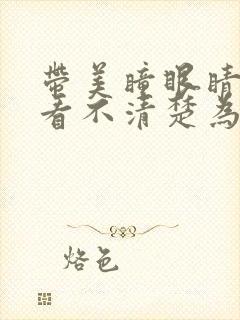 帶美瞳眼睛
看不清楚為
烙色